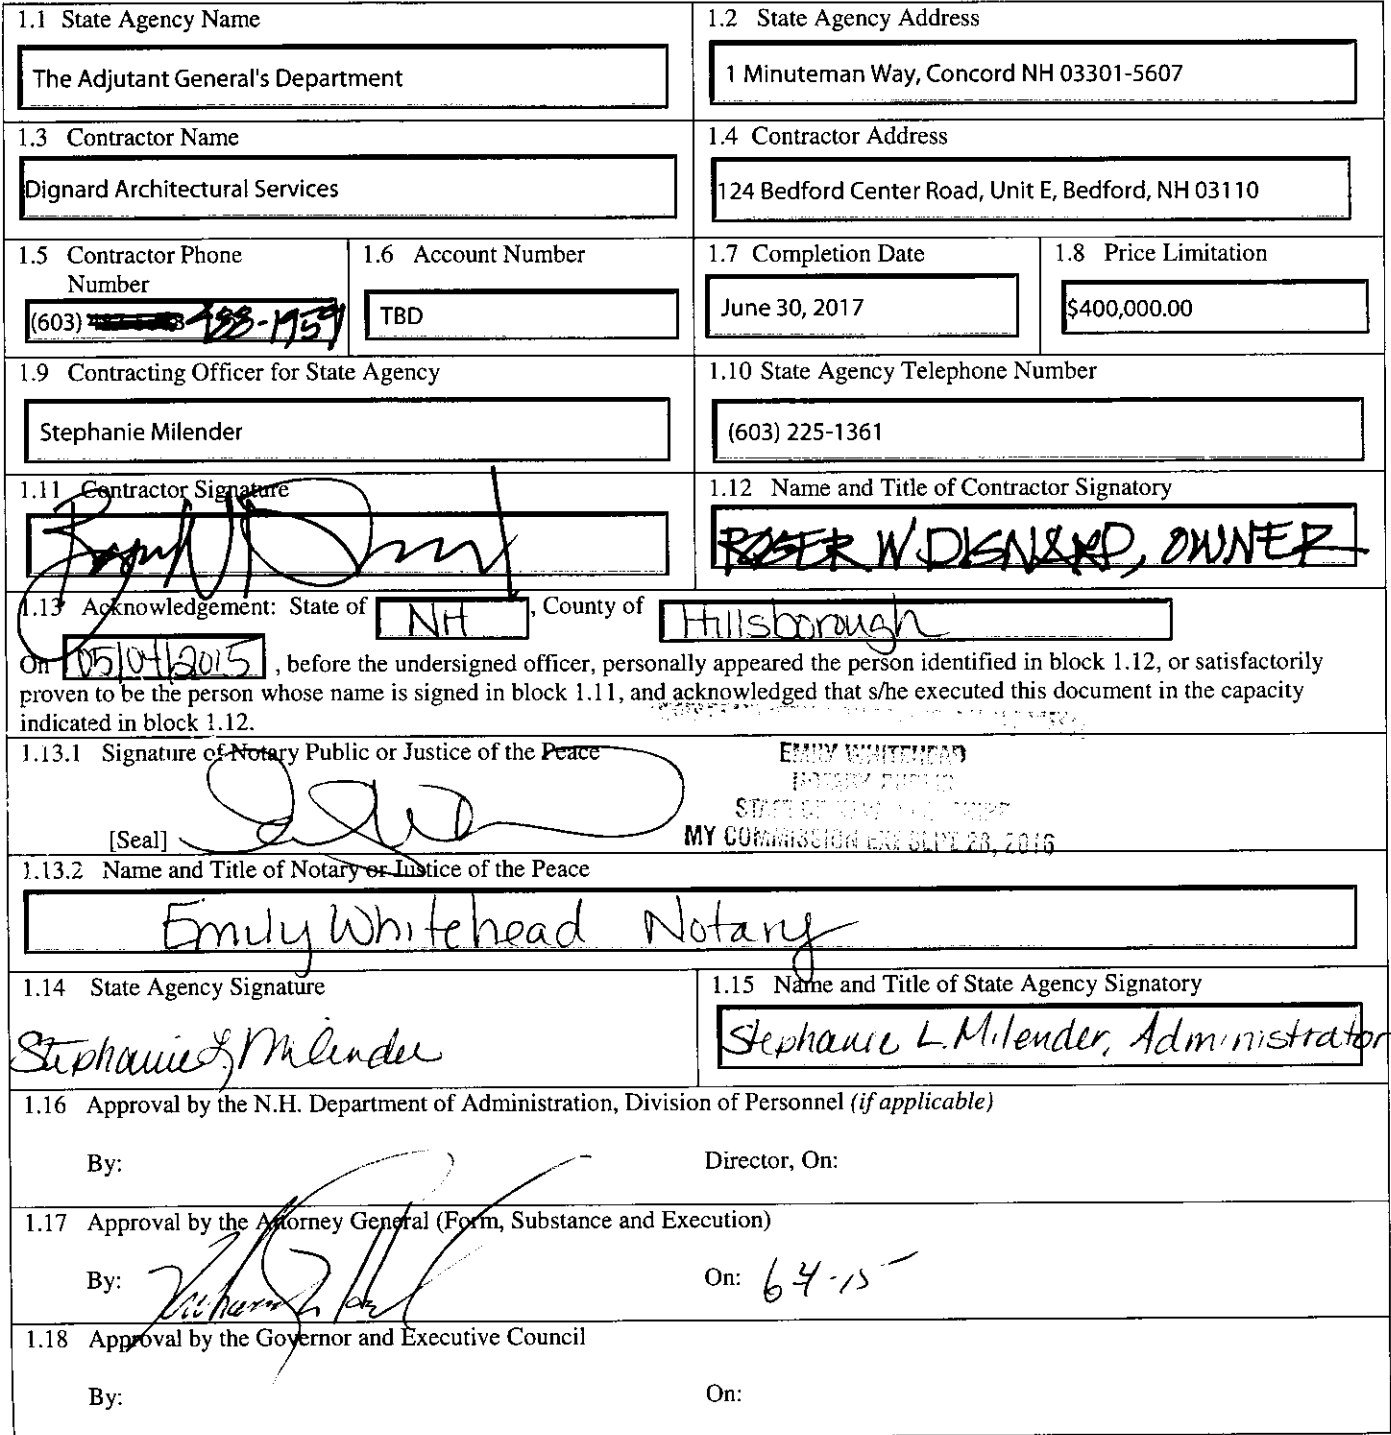 1.1 State Agency Name
The Adjutant General's Department
1.2 State Agency Address
1 Minuteman Way, Concord NH 03301-5607
1.3 Contractor Name
Dignard Architectural Services
1.4 Contractor Address
124 Bedford Center Road, Unit E, Bedford, NH 03110
1.5 Contractor Phone
Number
(603) 488-1959
1.6 Account Number
TBD
1.7 Completion Date
June 30, 2017
1.8 Price Limitation
$400,000.00
1.9 Contracting Officer for State Agency
Stephanie Milender
1.10 State Agency Telephone Number
(603) 225-1361
1.11 Contractor Signature
1.12 Name and Title of Contractor Signatory
ROGER W. DIGNARD, OWNER
1.13 Acknowledgement: State of NH, County of Hillsborough
On 05/04/2015, before the undersigned officer, personally appeared the person identified in block 1.12, or satisfactorily
proven to be the person whose name is signed in block 1.11, and acknowledged that s/he executed this document in the capacity
indicated in block 1.12.
1.13.1 Signature of Notary Public or Justice of the Peace
[Seal]
EMILY WHITEHEAD
NOTARY PUBLIC
STATE OF NEW HAMPSHIRE
MY COMMISSION EXP SEPT 28, 2016
1.13.2 Name and Title of Notary or Justice of the Peace
Emily Whitehead Notary
1.14 State Agency Signature
Stephanie L Milender
1.15 Name and Title of State Agency Signatory
Stephanie L. Milender, Administrator
1.16 Approval by the N.H. Department of Administration, Division of Personnel (if applicable)
By:
Director, On:
1.17 Approval by the Attorney General (Form, Substance and Execution)
By:
On: 6-4-15
1.18 Approval by the Governor and Executive Council
By:
On: